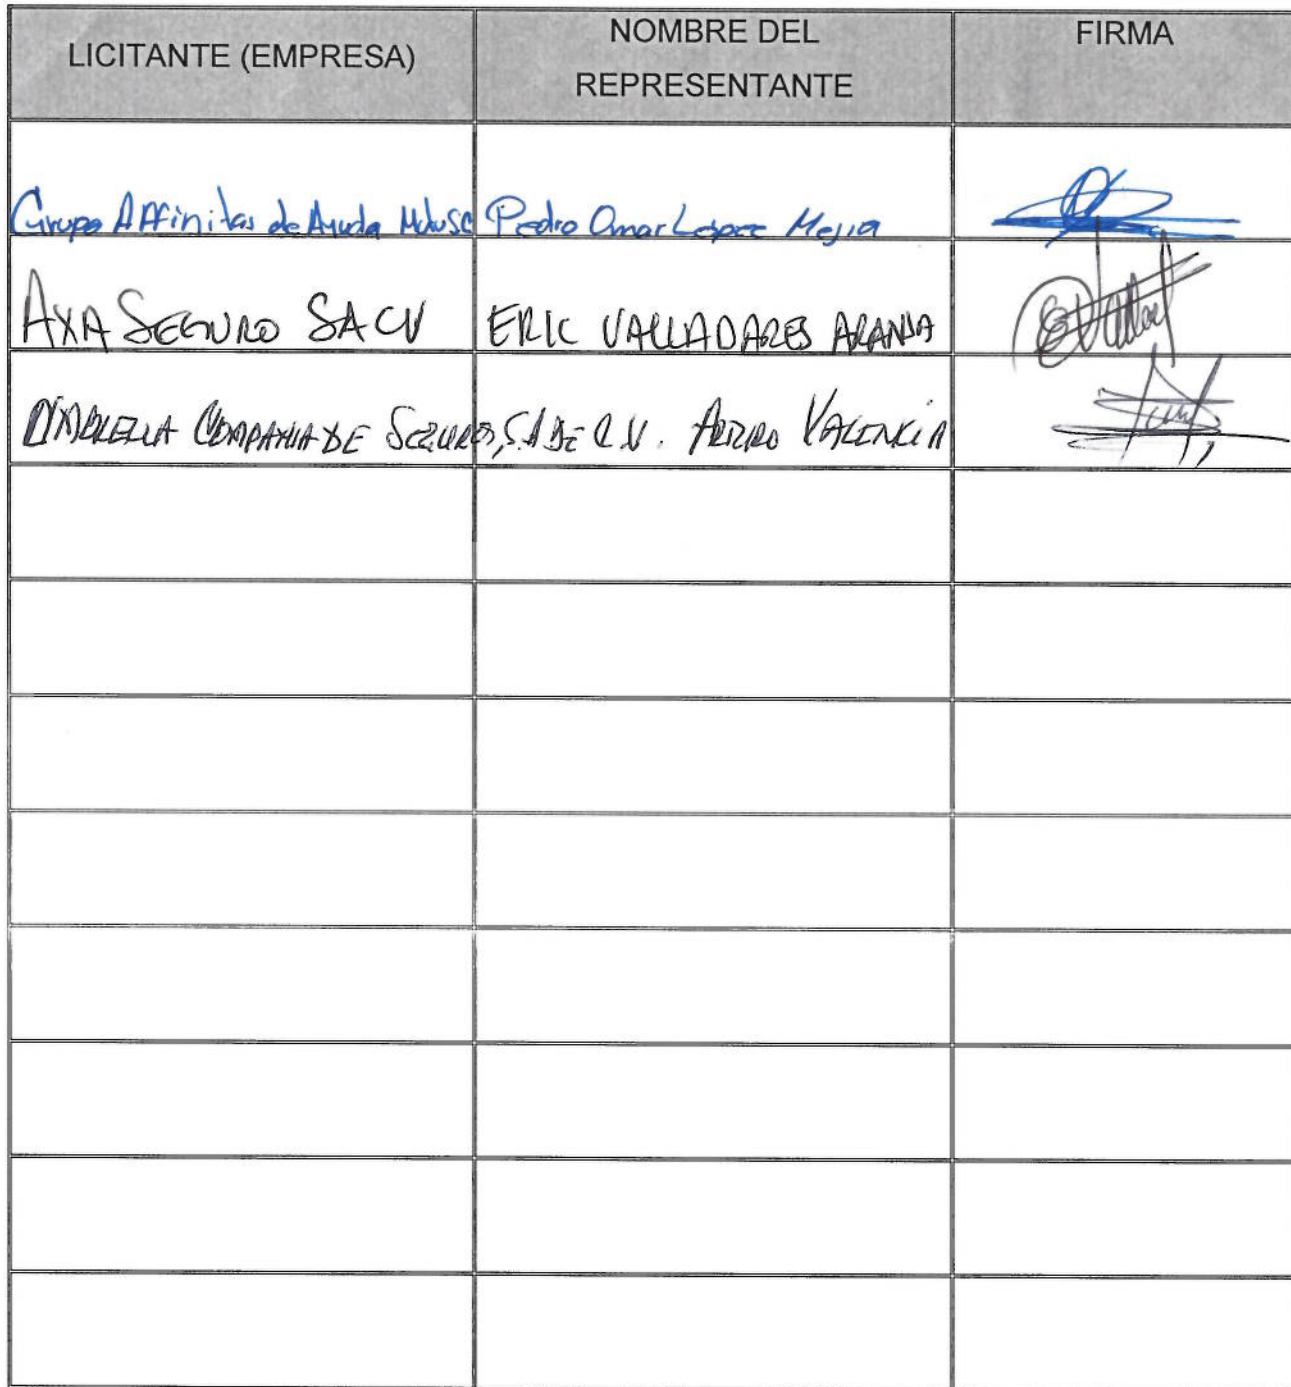 LICITANTE (EMPRESA)
NOMBRE DEL
REPRESENTANTE
FIRMA
Grupo Affinitas de Ayuda Mutu SC Pedro Omar López Mejia
AXA SEGURO SACV ERIC VALLADARES ARANDA
COMPAÑIA DE SEGUROS, S.A DE C.V. ARTURO VALENCIA